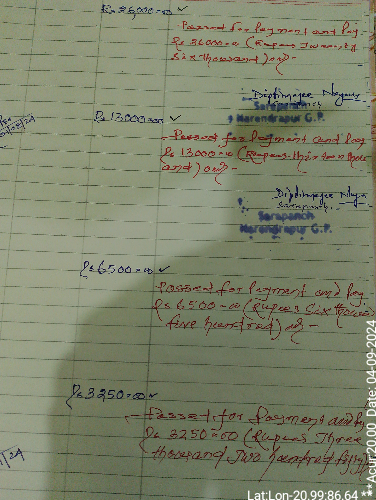 Rs 26,000=00 ✓
Passed for payment and pay
Rs 26000=00 (Rupees Twenty
Six thousand) only
Diptimayee Nayak
Sarapanch
Narendrapur G.P.
Rs 13000=00 ✓
Passed for payment and pay
Rs 13000=00 (Rupees thirteen thous
and) only -
Diptimayee Nayak
Sarapanch
Sarapanch
Narendrapur G.P.
Rs 6500=00 ✓
Passed for payment and pay
Rs 6500=00 (Rupees Six thousand
five hundred) only -
Rs 3250=00 ✓
Passed for payment and pay
Rs 3250=00 (Rupees Three
thousand Two hundred fifty)
Lat:Lon-20.99:86.64
***Acu:20.00 Date: 04-09-2024